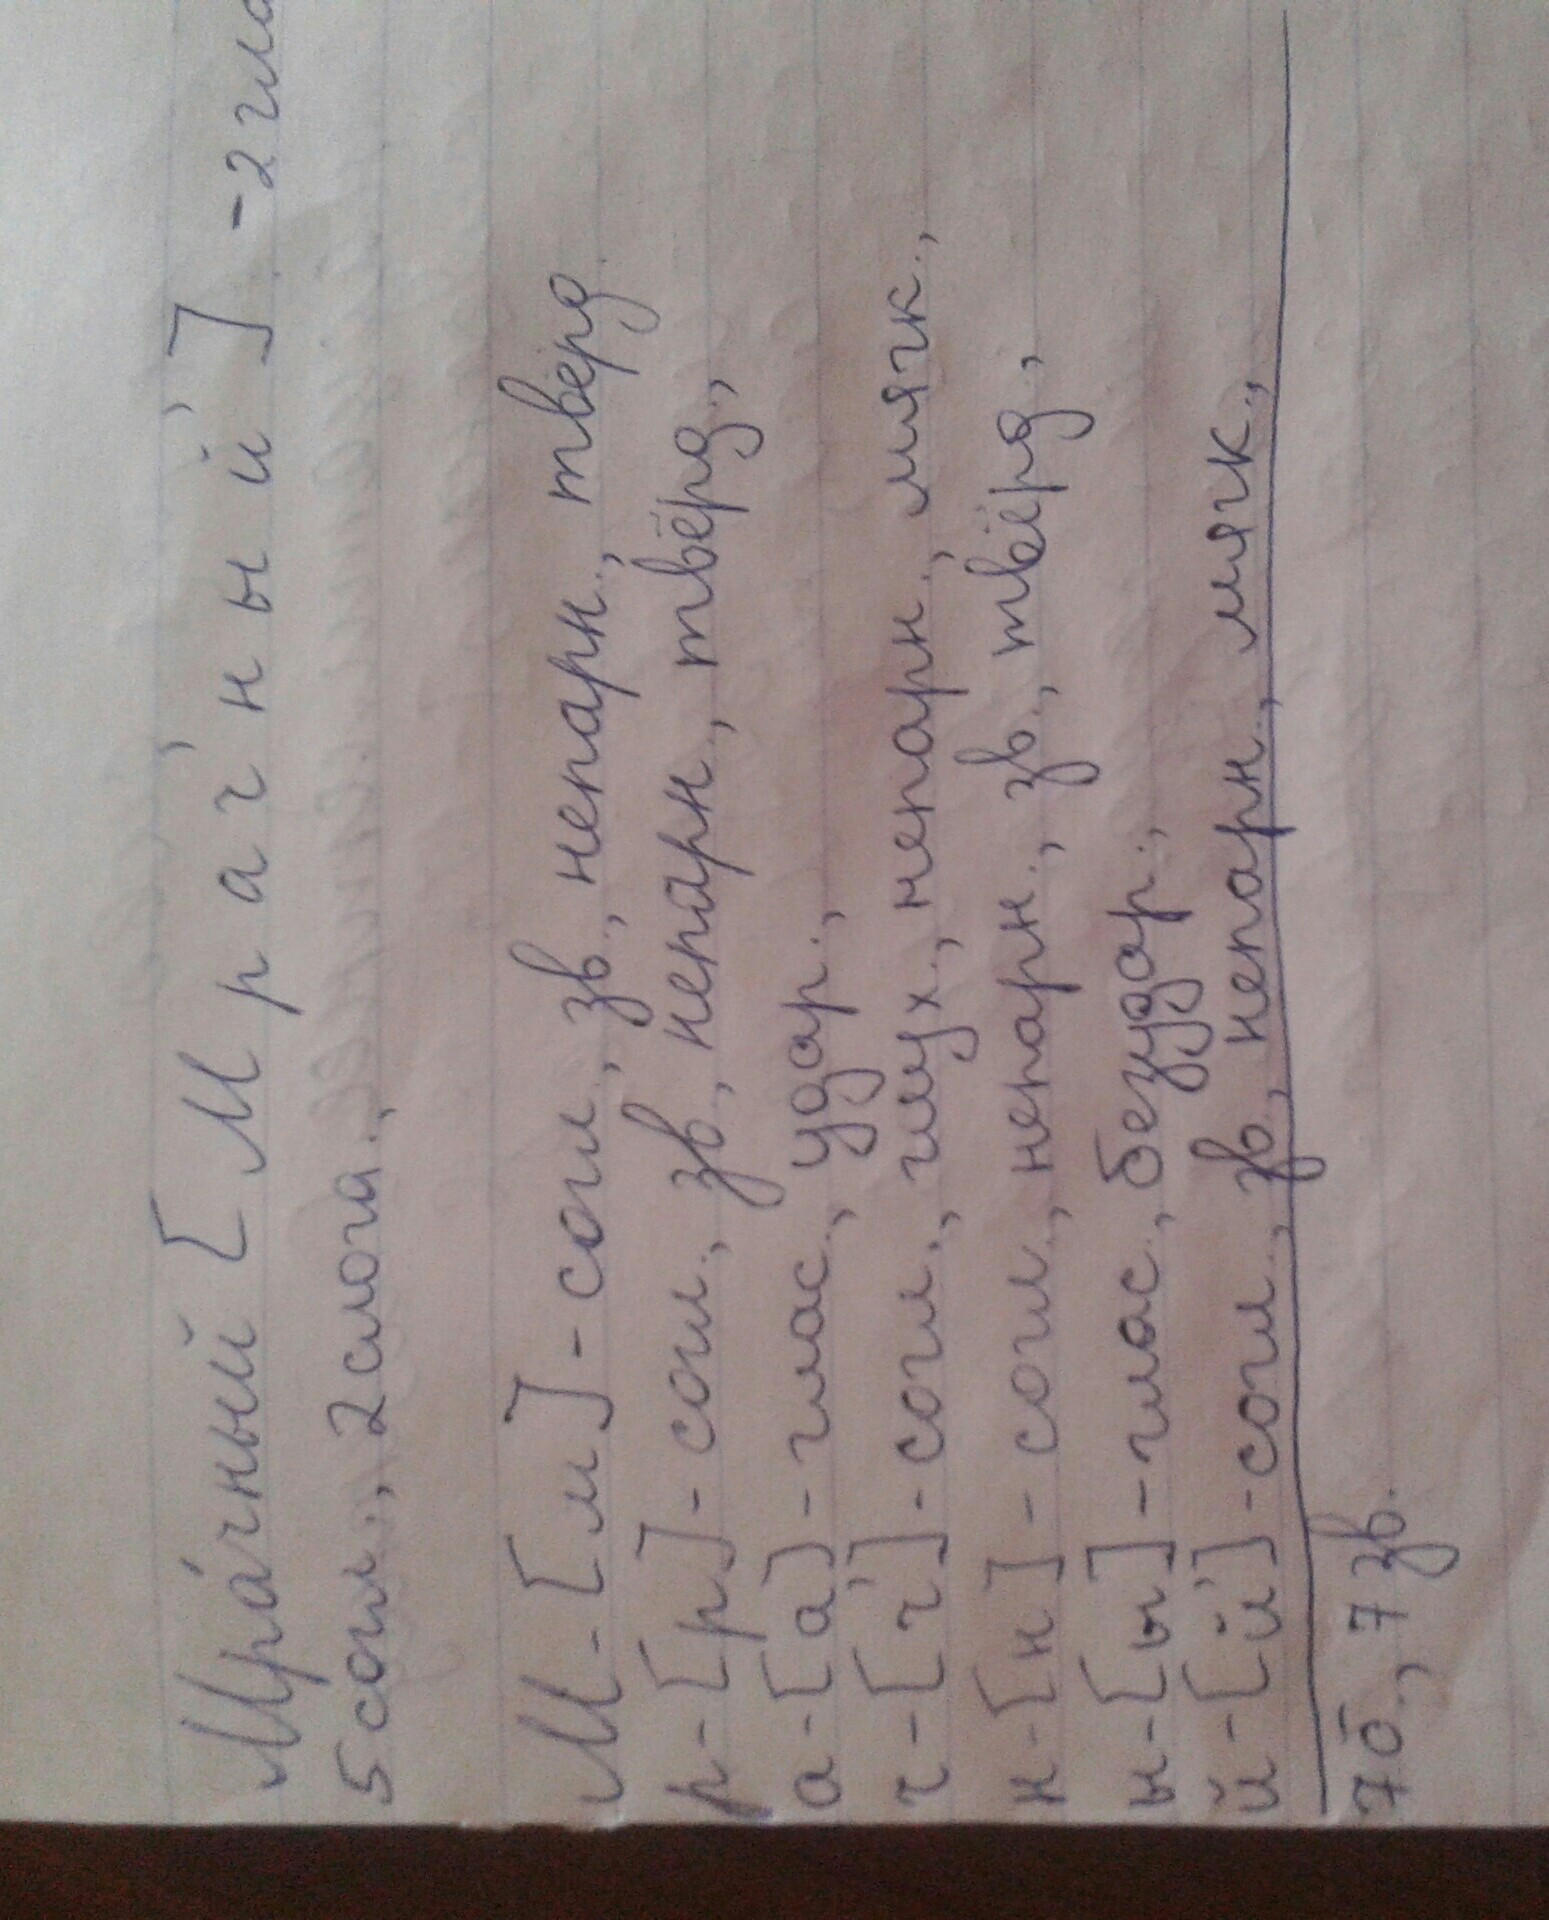 Мра́чный [М р а ч' н ы й'] - 2 гла
5 согл., 2 слога.,
М - [м] - согл., зв., непарн., твёрд.
р - [р] - согл., зв., непарн., твёрд.,
а - [а] - глас., удар.,
ч - [ч'] - согл., глух., непарн., мягк.,
н - [н] - согл., непарн., зв., твёрд.,
ы - [ы] - глас., безудар.,
й - [й'] - согл., зв., непарн., мягк.,
7 б., 7 зв.